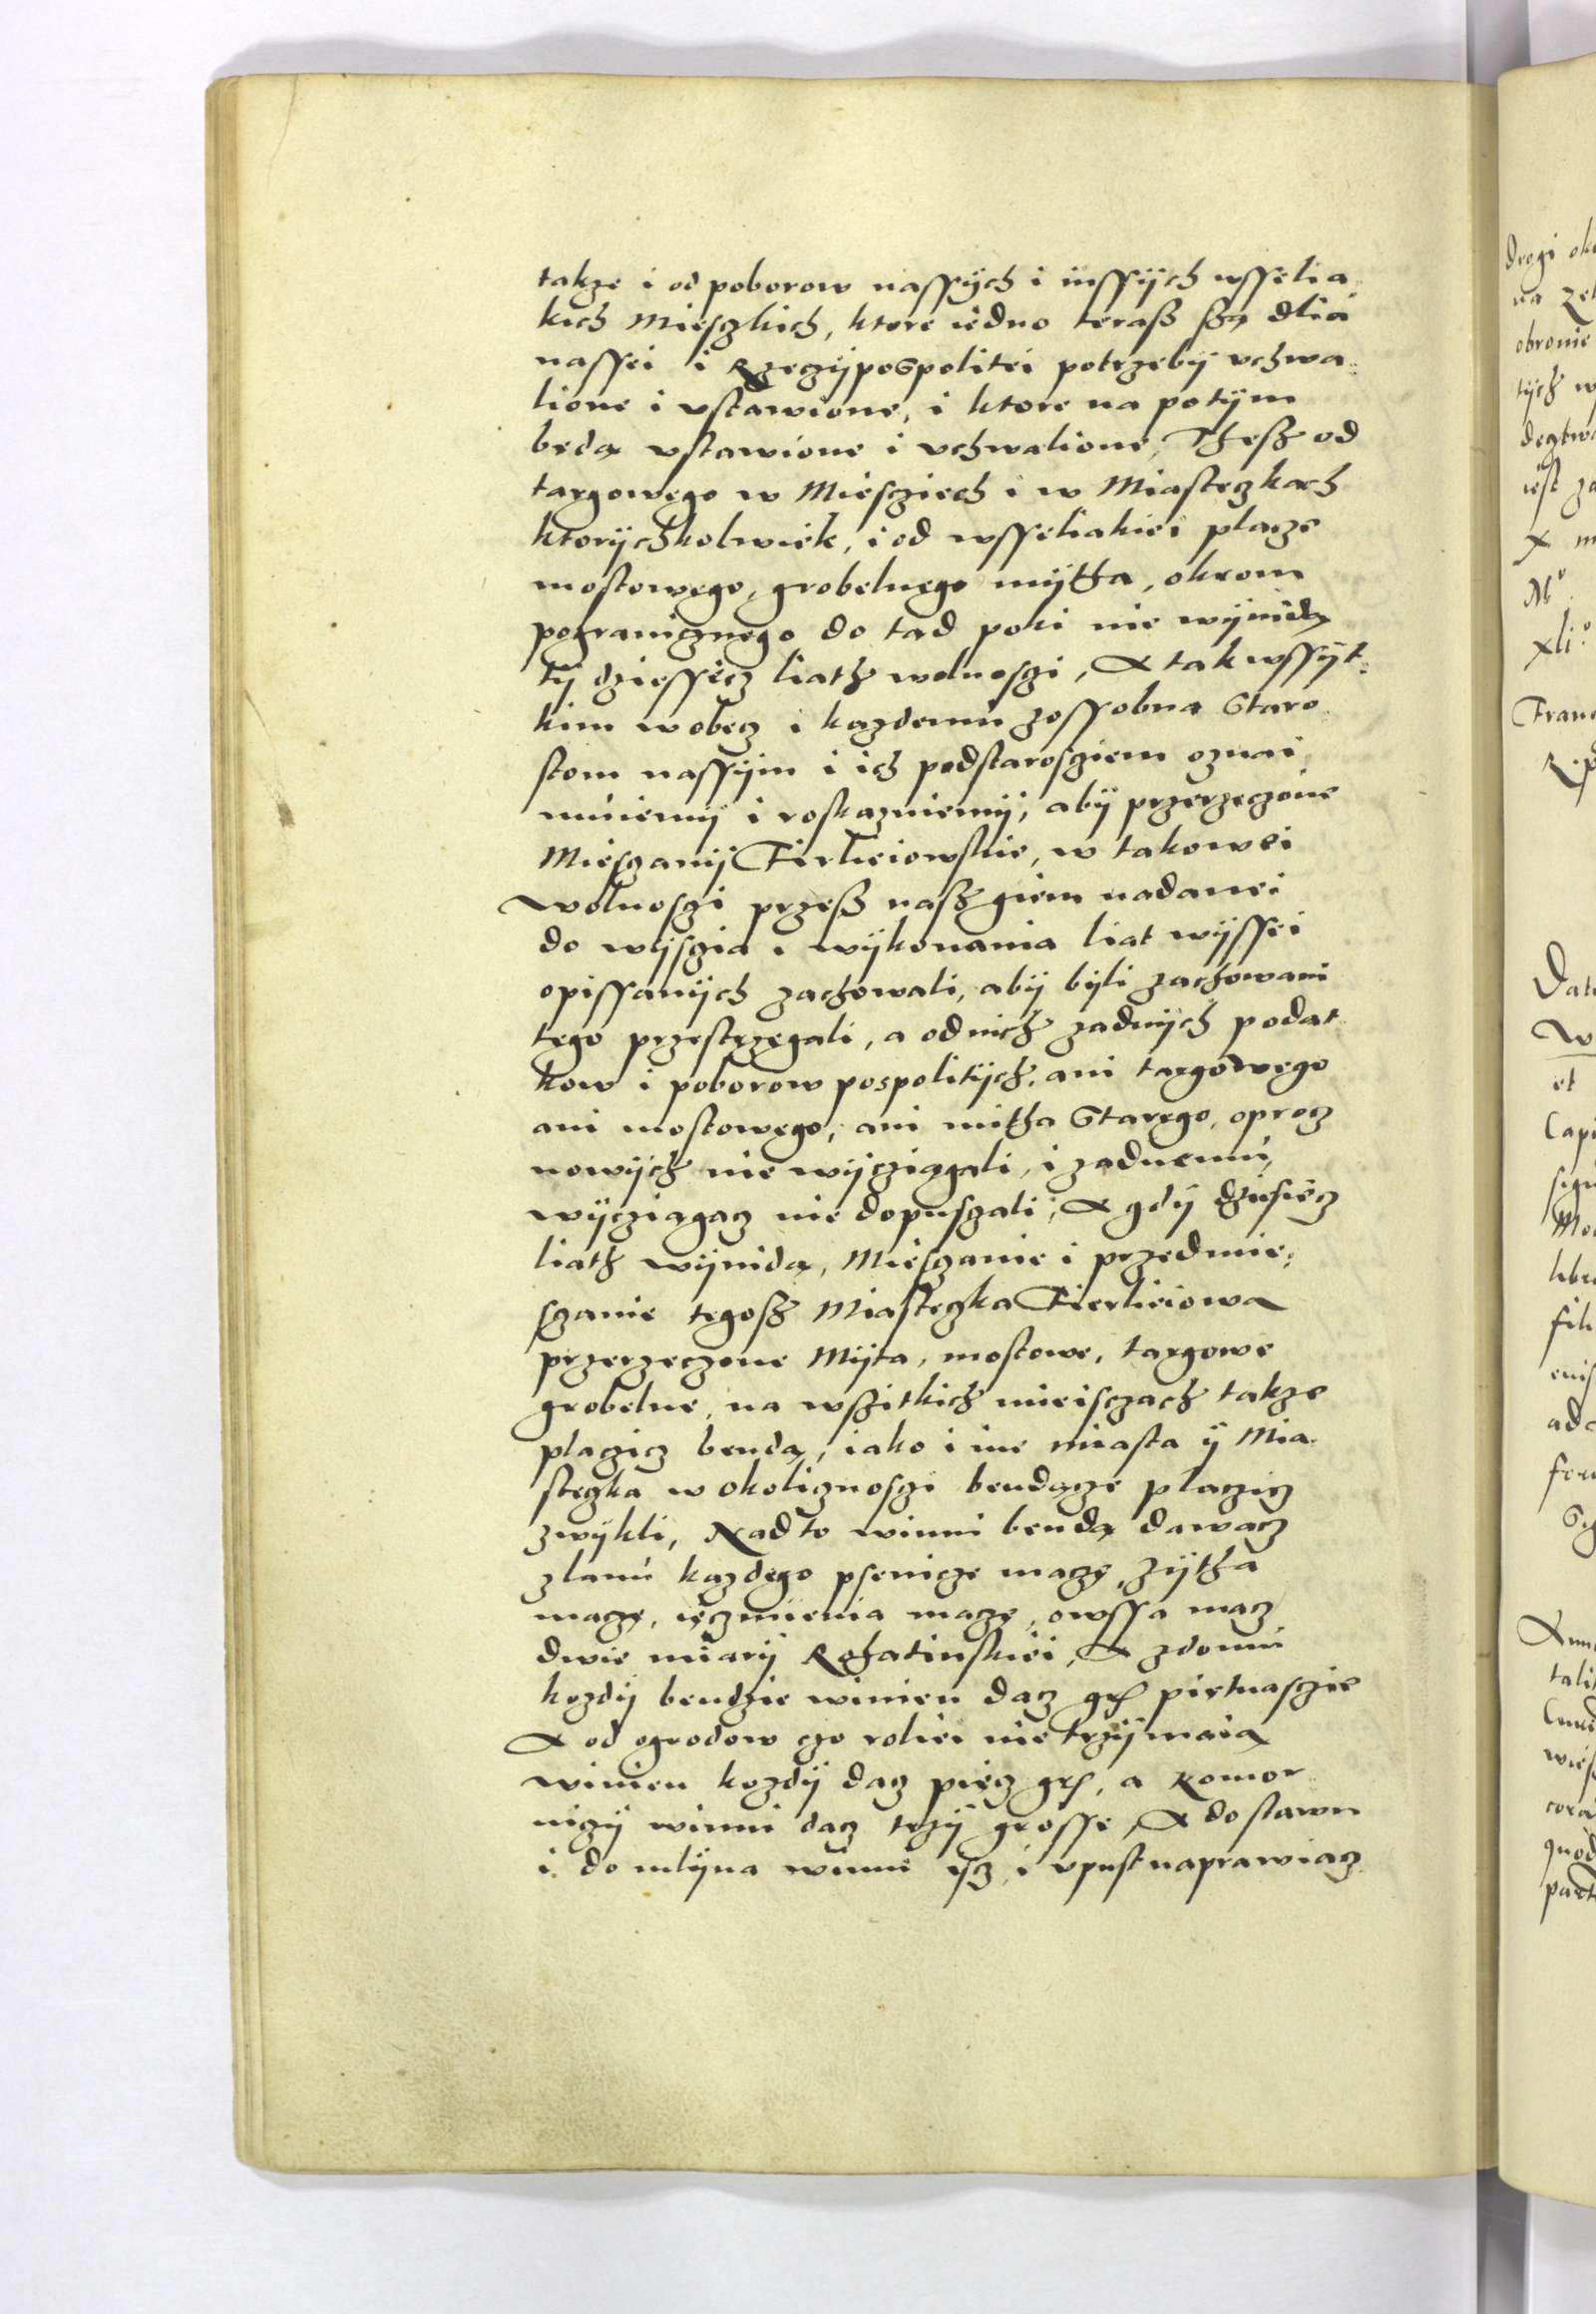 takze i od poborow nassÿch i inssÿch wsselia
kich Miesczkich, ktore iedno terasz sza dlia
nassei i RzeczÿpoSpolitei potrzebÿ vchwa-
lione i vstawione, i ktore na potÿm
beda vstawione i vchwalione, Thesz od
targowego w Miesciech i w Miasteczkach
ktorÿchkolwiek, i od wsseliakiei placze
mostowego, grobelnego mÿtha, okrom
pogranicznego do tad poki nie wÿnida
tÿ dziessiecz liath wolnosczi, A tak wssÿt-
kim wobecz i kazdemu zossobna Staro
stom nassÿm i ich podstarosciem oznai
muiemÿ i roskazuiemÿ, abÿ przerzeczone
Miesczanÿ Firlieiowskie, w takowei
wolnosczi przesz nasz giem nadanei
do wÿsczia i wÿkonania liat wÿssei
opissanÿch zachowali, abÿ bÿli zachowani
tego przestrzegali, a od nich zadnÿch podat
kow i poborow pospolitÿch, ani targowego
ani mostowego, ani mitha Starego, oprocz
nowÿch nie wÿcziagali, i zadnemu
wÿcziagacz nie dopusczali, A gdÿ dziesiecz
liath wÿnida, Miesczanie i przedmie-
sczanie tegosz Miasteczka Fierlieiowa
przerzeczone Mÿta, mostowe, targowe
grobelne, na wszitkich mieisczach takze
placzicz benda, iako i ine miasta ÿ Mia-
steczka w okolicznosczi bendacze placzicz
zwÿkli, Nad to winni benda dawacz
z lanu kazdego psenicze macze, zÿtha
macze, ieczmienia macze, owssa macz
dwie miarÿ Rohatinskiei, A z domu
kozdÿ bendzie winien dacz gr pietnasczie
A od ogrodow czo roliei nie trzÿmaia
winien kozdÿ dacz piecz gr, a Komor
niczÿ winni dacz trzÿ grosse, A do stawu
i do mlÿna winni ÿcz i vpust naprawiacz